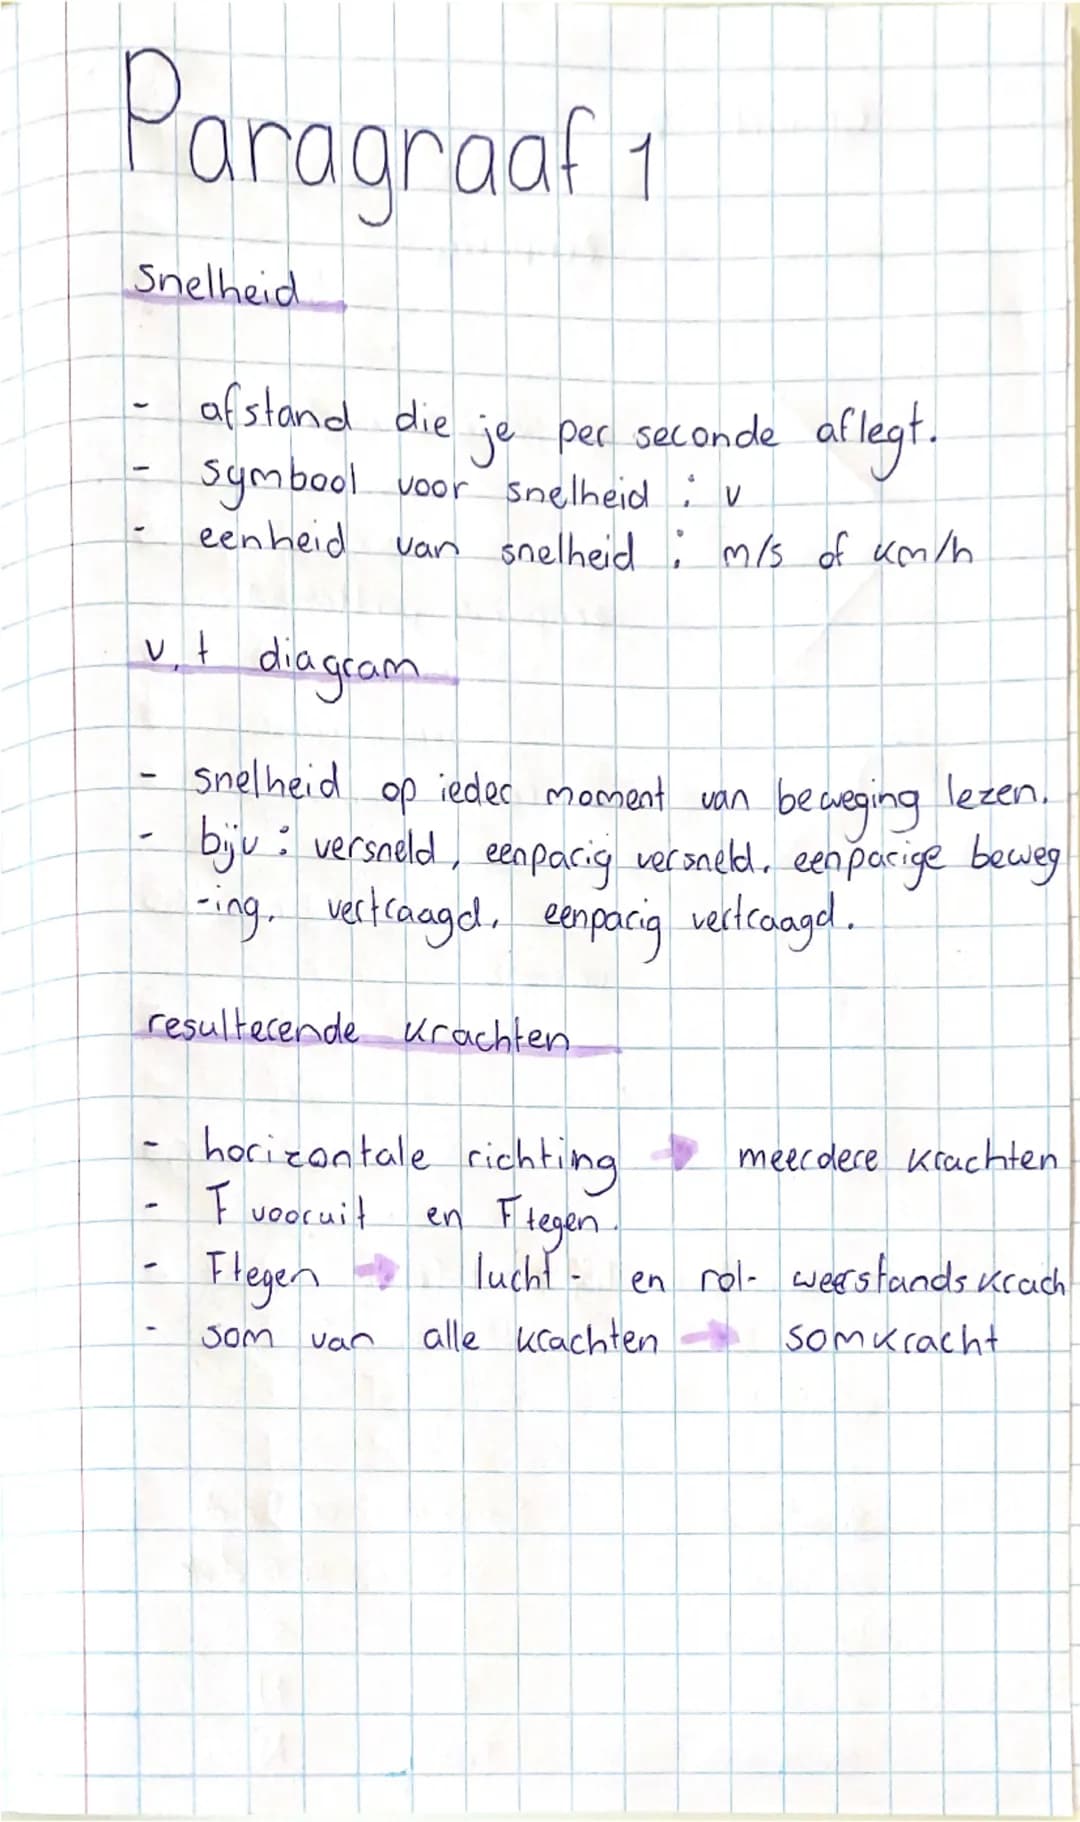 Paragraaf 1
Snelheid
- afstand die je per seconde aflegt.
- symbool voor snelheid : v
- eenheid van snelheid : m/s of km/h
v,t diagram
- snelheid op ieder moment van beweging lezen.
- bijv : versneld, eenparig versneld, eenparige beweg
-ing, vertraagd, eenparig vertraagd.
resulterende krachten
- horizontale richting → meerdere krachten
- F vooruit en F tegen.
- F tegen → lucht - en rol- weerstandskrach
- som van alle krachten → somkracht